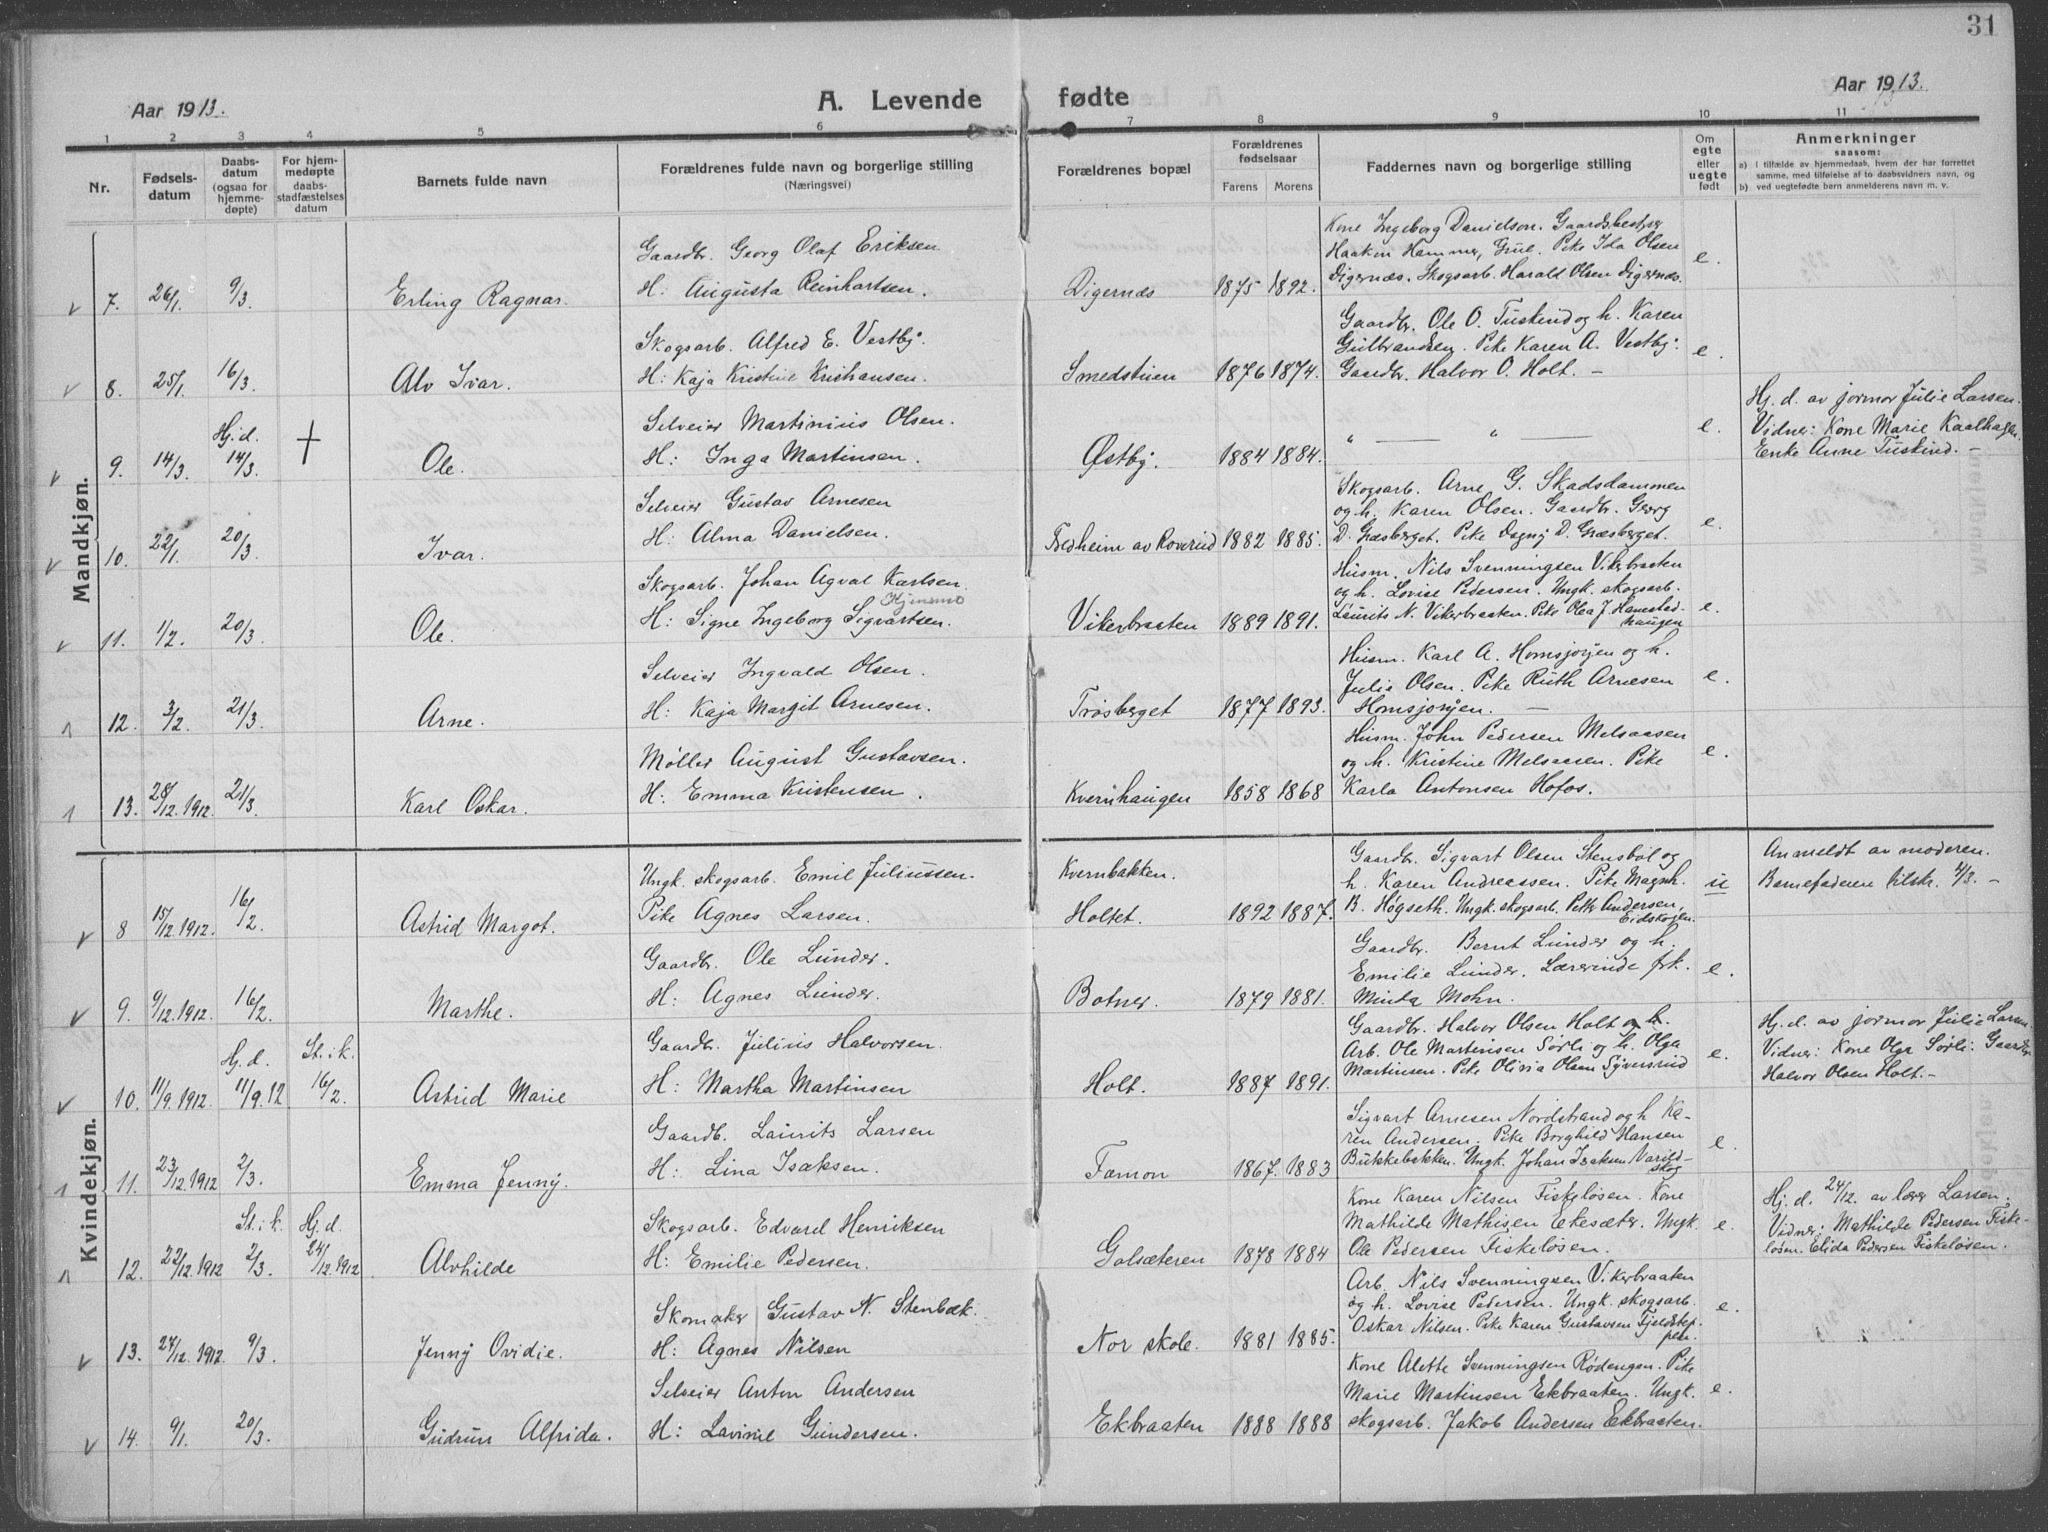 31
Aar 1913.
A. Levende fødte
Aar 1913.
1 2 3 4 5 6 7 8 9 10 11
Nr.
Fødsels-
datum
Daabs-
datum
(ogsaa for
hjemme-
døpte)
For hjem-
medøpte
daabs-
stadfæstelses
datum
Barnets fulde navn
Forældrenes fulde navn og borgerlige stilling
(Næringsvei)
Forældrenes bopæl
Forældrenes
fødselsaar
Farens Morens
Faddernes navn og borgerlige stilling
Om
egte
eller
uegte
født
Anmerkninger
saasom:
a) i tilfælde av hjemmedaab, hvem der har forrettet
samme, med tilføielse af to daabsvidners navn, og
b) ved uegtefødte barn anmelderens navn m. v.
Mandkjøn.
7. 26/1. 9/3 Erling Ragnar.
Gaardbr. Georg Olaf Eriksen
H: Augusta Reinhartsen.
Digernæs 1875 1892.
Kone Ingeborg Danielson. Gaardsbestyrer
Haakon Hammer, Grue. Pike Ida Olsen
Digernæs. Skogsarb. Harald Olsen Digernæs.
e.
8. 25/1. 16/3. Alv Ivar.
Skogsarb. Alfred E. Vestby.
H: Kaja Kristine Kristiansen.
Smedstuen 1876 1874.
Gaardbr. Ole O. Tuskind og h. Karen
Gulbrandsen. Pike Karen A. Vestby.
Gaardbr. Halvor O. Holt. —
e.
9. 14/3. Hj. d. 14/3. † Ole.
Selveier Martinius Olsen.
H: Inga Martinsen.
Østby. 1884 1884.
" — " —
e.
Hj. d. av jormor Julie Larsen.
Vidner: Kone Marie Kaalhagen.
Enke Anne Tuskind. —
10. 22/1. 20/3. Ivar.
Selveier Gustav Arnesen
H: Alma Danielsen.
Fredheim av Roverud 1882 1885.
Skogsarb. Arne G. Skadsdammen
og h. Karen Olsen. Gaardbr. Georg
D. Græsberget. Pike Dagny D. Græsberget.
e.
11. 1/2. 20/3. Ole.
Skogsarb. Johan Agval Karlsen.
H: Signe Ingeborg Sigvartsen.
Vikerbraaten 1889 1891.
Husm. Nils Svenningsen Vikerbraaten
og h. Lovise Pedersen. Ungk. skogsarb.
Laurits N. Vikerbraaten. Pike Olea J. Hamstad-
haugen
e.
12. 3/2. 21/3. Arne.
Selveier Ingvald Olsen.
H: Kaja Margit Arnesen.
Trösberget 1877 1893.
Husm. Karl A. Homsjøryen og h.
Julie Olsen. Pike Ruth Arnesen
Homsjøryen. —
e.
13. 28/12. 1912. 21/3. Karl Oskar.
Møller August Gustavsen.
H: Emma Kristensen.
Kvernhaugen 1858 1868
Husm. John Pedersen Melsaasen
og h. Kristine Melsaasen. Pike
Karla Antonsen Hofos.
e.
Kvindekjøn.
8 15/12. 1912. 16/2. Astrid Margot.
Ungk. skogsarb. Emil Juliussen.
Pike Agnes Larsen.
Kvernbakken.
Holtet. 1892 1887.
Gaardbr. Sigvart Olsen Stensbøl og
h. Karen Andreassen. Pike Magnh.
B. Høgseth. Ungk. skogsarb. Petter Andersen,
Eidskogen.
u
Anmeldt av moderen.
Barnefaderen tilskr. 4/3. —
9. 9/12. 1912. 16/2. Marthe.
Gaardbr. Ole Lunder.
H: Agnes Lunder.
Botner. 1879 1881.
Gaardbr. Bernt Lunder og h.
Emilie Lunder. Lærerinde frk.
Minda Mohn.
e.
10. 11/9. 1912. Hj. d. 11/9. 12 St. i k. 16/2. Astrid Marie
Gaardbr. Julius Halvorsen.
H: Martha Martinsen
Holt. 1887 1891.
Gaardbr. Halvor Olsen Holt og h.
Arb. Ole Martinsen Sørli og h. Olga
Martinsen. Pike Olivia Olsen Syversrud
e.
Hj. d. av jormor Julie Larsen.
Vidner: Kone Olga Sørli. Gaardbr.
Halvor Olsen Holt. —
11. 23/12. 1912 2/3. Emma Jenny.
Gaardb. Laurits Larsen
H: Lina Isaksen.
Tamon. 1867. 1883
Sigvart Arnesen Nordstrand og h Ka-
ren Andersen. Pike Borghild Hansen
Bukkebakken. Ungk. Johan Isaksen Varild-
skog
e.
12. 22/12. 1912 St. i k. 2/3. Hj. d. 24/12. 1912. Alvhilde
Skogsarb. Edvard Henriksen
H: Emilie Pedersen.
Golsæteren 1878 1884
Kone Karen Nilsen Fiskeløsen. Kone
Mathilde Mathisen Ekesæter. Ungk.
Ole Pedersen Fiskeløsen.
e.
Hj. d. 24/12. av lærer Larsen.
Vidner: Mathilde Pedersen Fiske-
løsen. Elida Pedersen Fiskeløsen.
13. 27/12. 1912 9/3. Jenny Ovidie.
Skomaker Gustav N. Stenbæk.
H: Agnes Nilsen
Nor skole. 1881 1885.
Arb. Nils Svenningsen Vikerbraaten
og h. Lovise Pedersen. Ungk. skogsarb.
Oskar Nilsen. Pike Karen Gustavsen
e.
14. 9/1. 20/3. Gudrun Alfrida.
Selveier Anton Andersen
H: Lavine Gundersen.
Ekbraaten 1888 1888
Kone Alette Svenningsen Rødengen. Pike
Marie Martinsen Ekbraaten. Ungk.
skogsarb. Jakob Andersen Ekbraaten.
e.